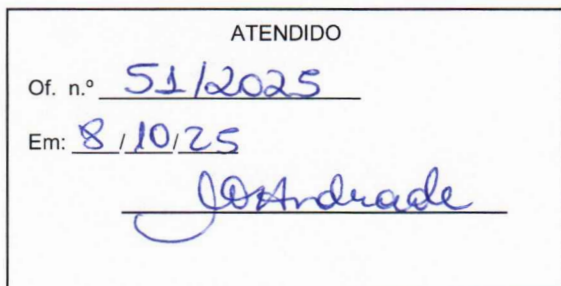 ATENDIDO
Of. n.º 51/2025
Em: 8/10/25
Andrade